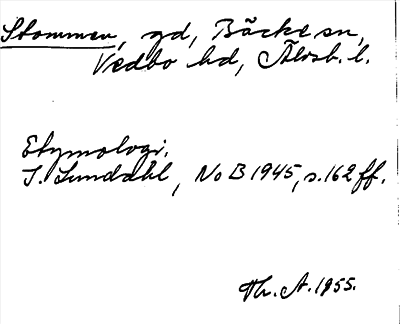 Stommen, gd, Bäcke sn,
Vedbo hd, Älvsb. l.
Etymologi.
I. Lundahl, NoB 1945, s. 162 ff.
Th. A. 1955.